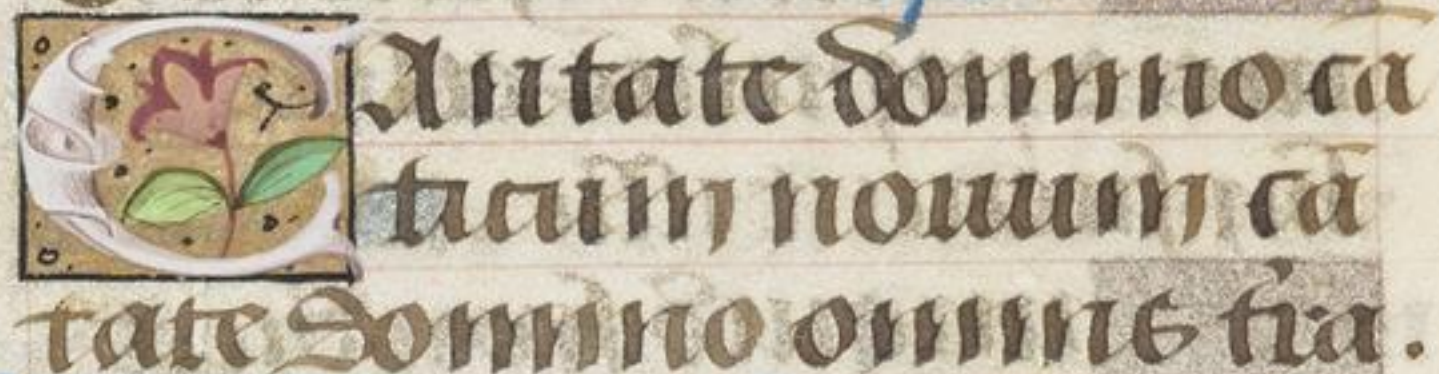 CAntate domino cā
ticum nouum cā
tate domino omnis tr̄a.